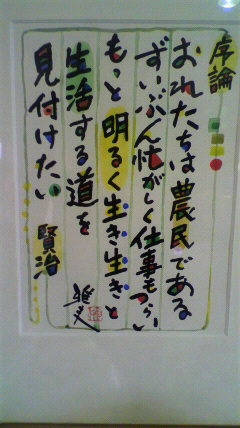 序論
おれたちは農民である
ずいぶん忙がしく仕事もつらい
もっと明るく生き生きと
生活する道を
見付けたい
賢治